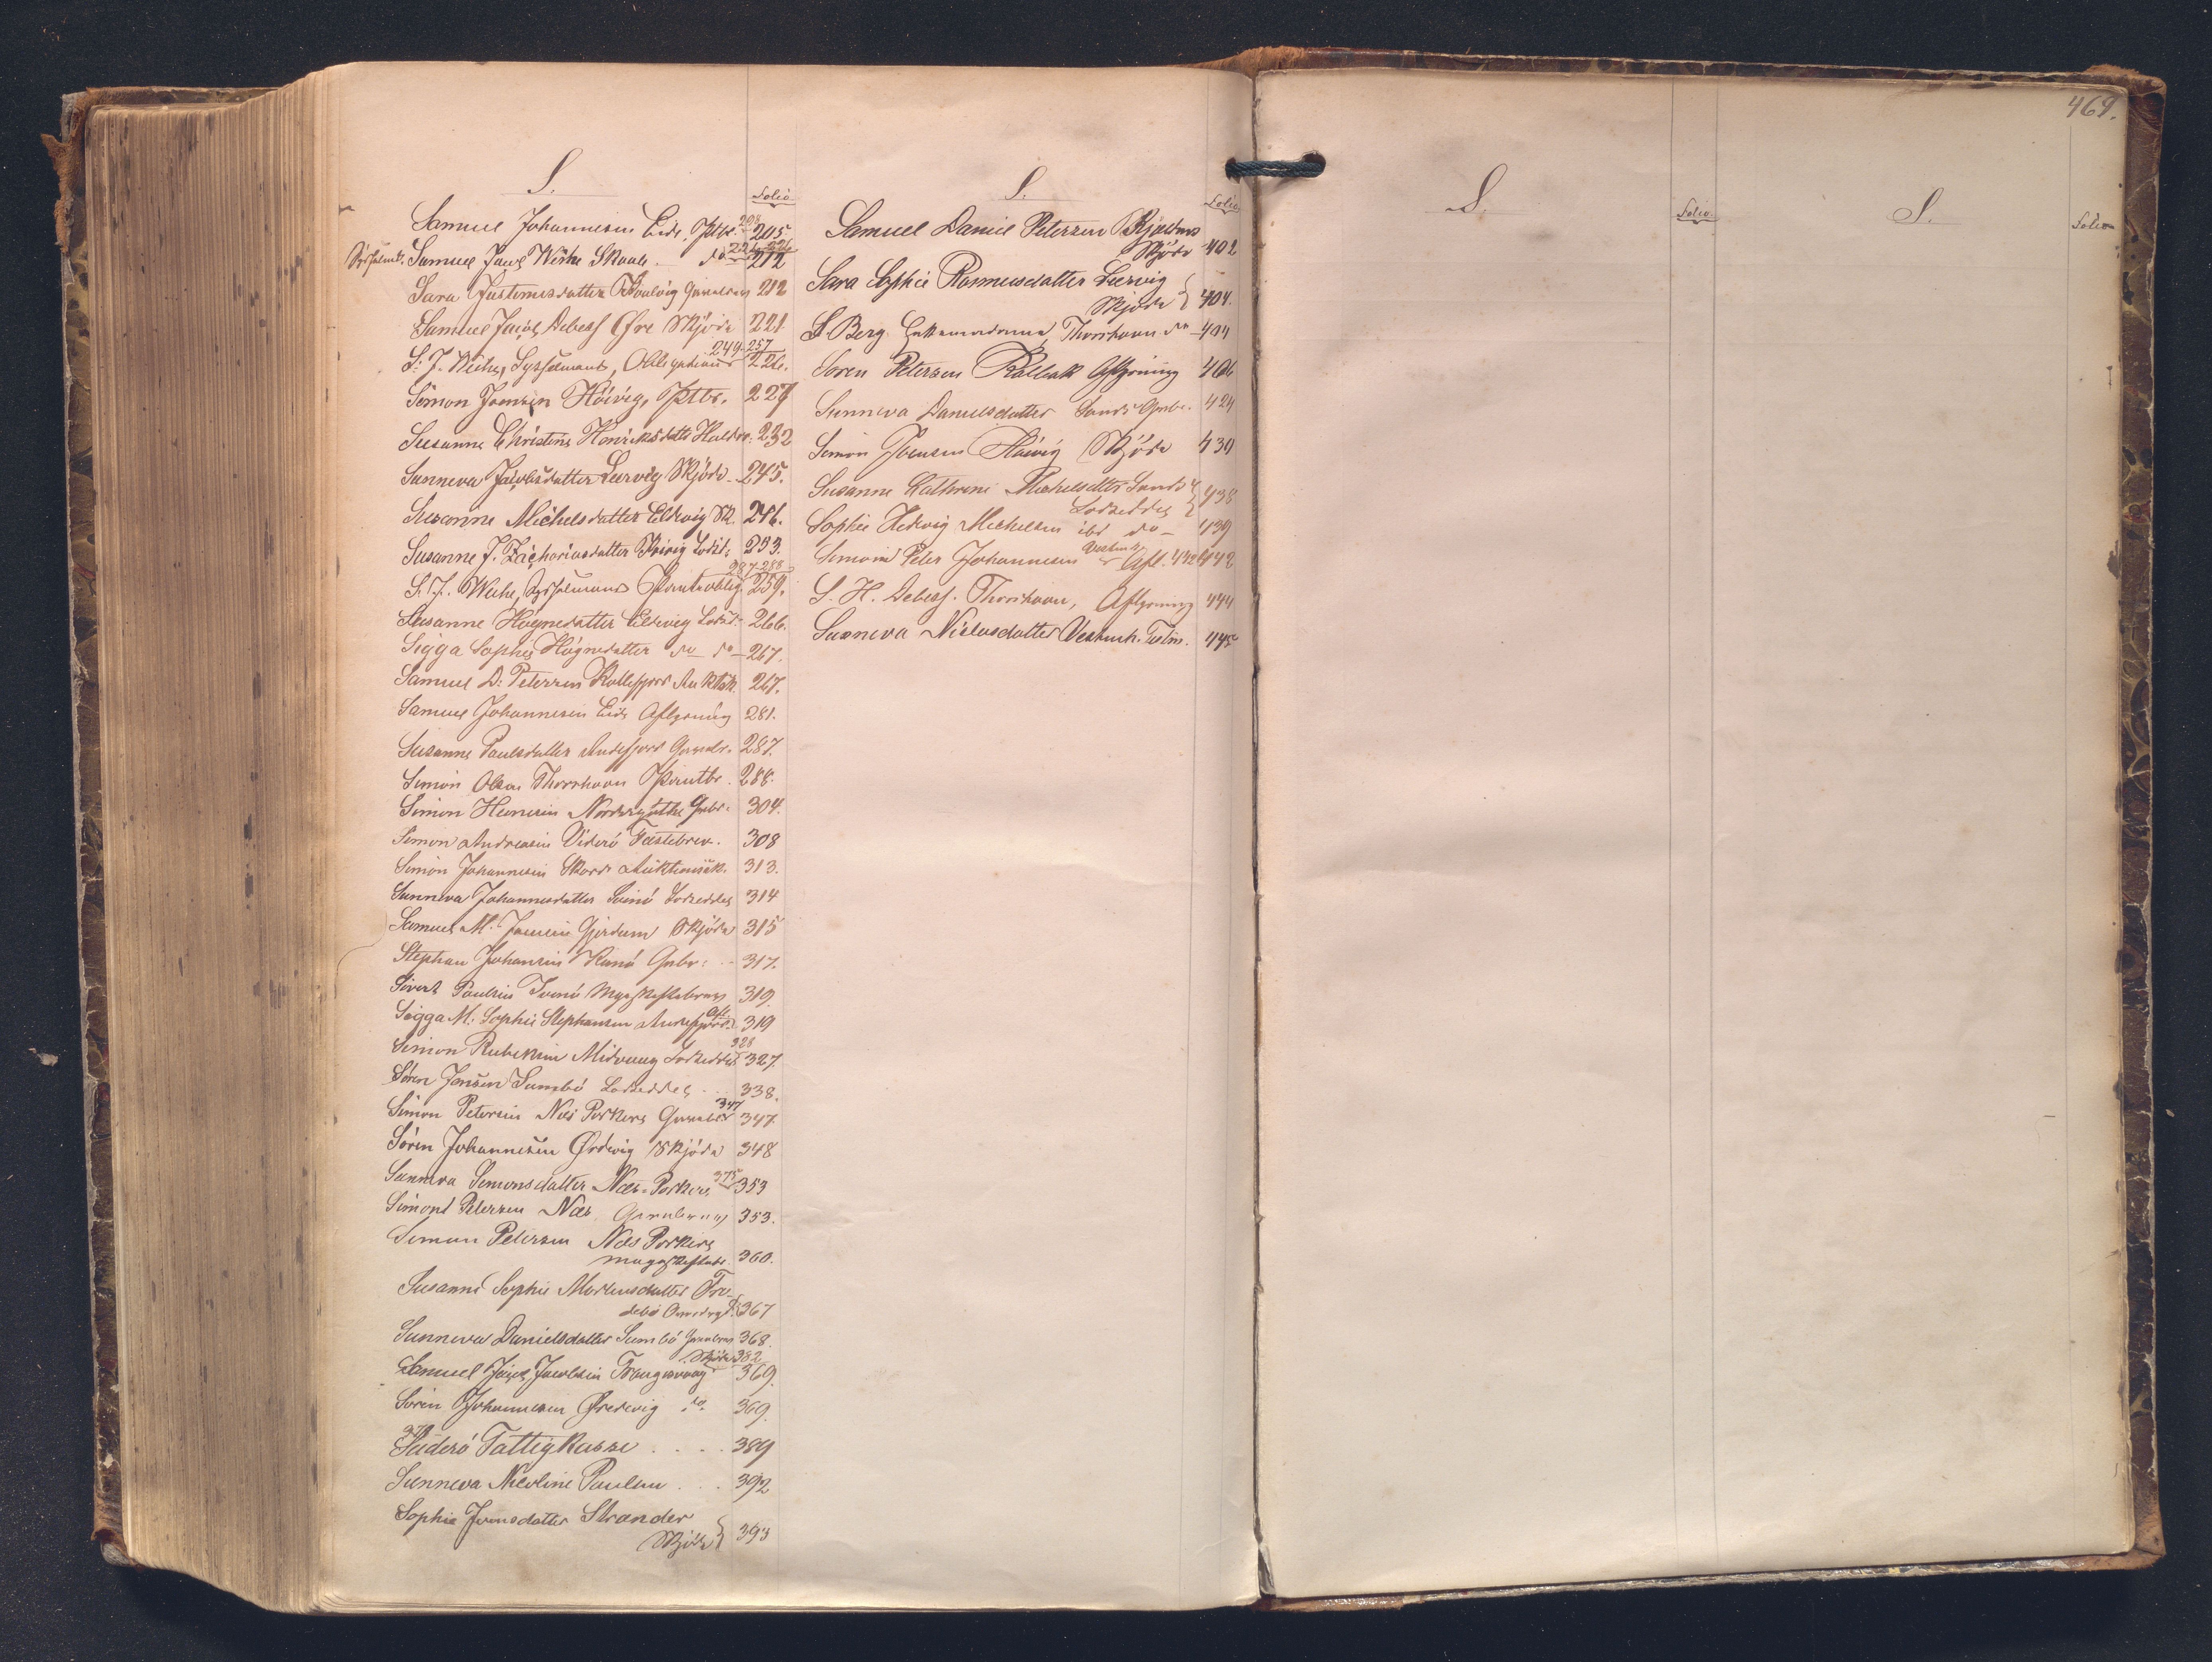 S.
Folio
Samuel Johannesen Eide, Ptbr. 208 205.
Sysselmd. Samuel Jacob Weihe Skaale do 224-226 212
Sara Justinusdatter Gavebrev 212
Samuel Jacob Debess Øre Skjöde 221
S. J. Weihe, Sysselmand, Obligationer 249-257 226.
Simon Joensen Höivig, Ptbr. 227
Susanne Christine Henriksdatter Haldor. 232
Sunneva Jacobsdatter Leervig Skjöde 245.
Susanne Michelsdatter Eldevig Sk. 246.
Susanne J. Zachariasdatter Lodsd. 253.
S. J. Weihe, Sysselmand Panteoblig. 287-288 259.
Susanne Högnedatter Eldevig Lodsd. 266.
Sigga Sophie Högnedatter do do 267.
Samuel D. Petersen Kollefjord Auktsk. 267.
Samuel Johannesen Eide Aflysning 281.
Susanne Paulsdatter Andefjord Gavebr. 287.
Simon Olsen Thorshavn Pantbr. 288.
Simon Hansen Nordregöthe Gvbr. 304.
Simon Andreasen Viderö Fæstebrev. 308
Simon Johannesen Skor Auktionssk. 313.
Sunneva Johannesdatter Svinö Lodseddel 314
Samuel M. Joensen Gjerdum Skjöde 315
Stephan Johansen Kunö Gvbr. 317.
Sivert Paulsen Svinö Mageskiftebrev 319.
Sigga M. Sophie Stephansen Andefjord Afl. 319
Simon Rubeksen Midvaag Lodseddel 328 327.
Sören Jensen Sumbö Lodseddel 338.
Simon Petersen Næs Porkere Gavebr. 347 347.
Sören Johannesen Ørdevig Skjöde 348
Sunneva Simonsdatter Næs-Porkere 375 353
Simon Petersen Næs Gavebrev 353.
Simon Petersen Næs Porkere
mageskiftebr. 360.
Susanne Sophie Mortensdatter Fro-
debö 367
Sunneva Danielsdatter Sumbö Gavebrev 368.
Skjöde 382
Samuel Jacob Jacobsen Trangisvaag 369.
Sören Johannesen Øredevig do. 369.
378
Suderö Fattigkasse . . . . 389
Sunneva Nicoline Paulsen . . . 392
Sophie Joensdatter Strander
Skjöde } 393
S.
Folio
Samuel Daniel Petersen
Skjöde 402
Sara Sophie Rasmusdatter Leervig
Skjöde } 404.
S. Berg. Enkemadame, Thorshavn do 404
Sören Petersen Kalbak Aflysning 406
Sunneva Danielsdatter Sand Gvbr. 424
Simon Joensen Höivig Skjöde 430
Susanne Kathrine Michelsdatter Sand
Lodseddel } 438
Sophie Hedvig Michelsen ibd do 439
Simon Peter Johannesen Vestmh. Afl. 442 442
S. H. Debess. Thorshavn, Aflysning 444
Sunneva Niclasdatter Vestmh. Testm. 445
469.
S.
Folio.
S.
Folio